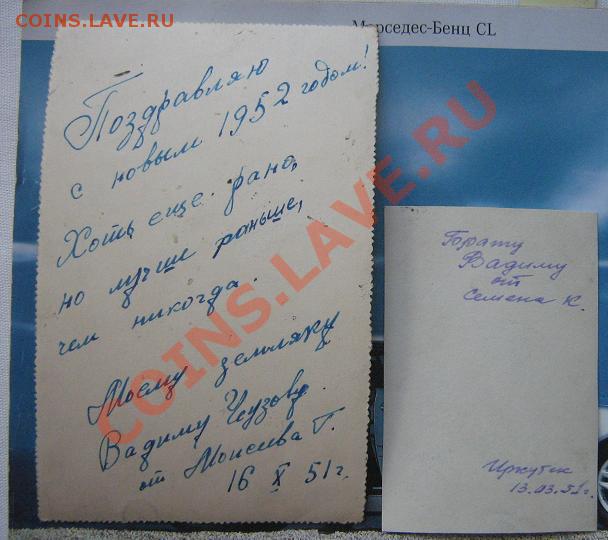 COINS.LAVE.RU
Мерседес-Бенц CL
Поздравляю
с новым 1952 годом!
Хоть еще рано,
но лучше раньше,
чем никогда.
Моему земляку
Вадиму Чузову
от Моисеева Г.
16 X 51 г.
COINS.LAVE.RU
Вадиму
от
Семена К.
Иркутск
13.03.52г.